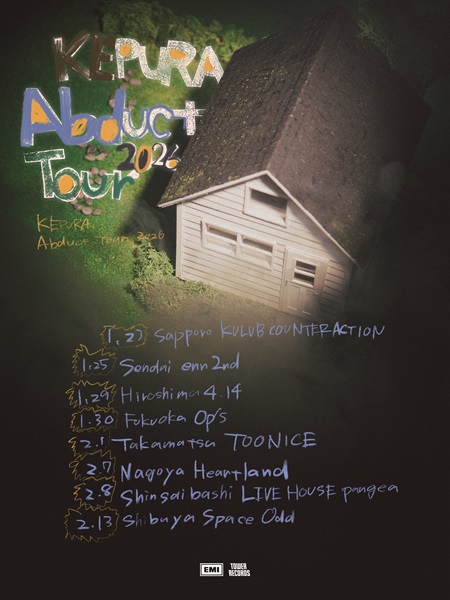 KEPURA
Abduct
2026
Tour
KEPURA
Abduct Tour 2026
Sapporo KULUB COUNTERACTION
1.25 Sendai enn 2nd
1.29 Hiroshima 4.14
1.30 Fukuoka Op's
2.1 Takamatsu TOONICE
2.7 Nagoya Heartland
2.8 Shinsaibashi LIVE HOUSE pangea
2.13 Shibuya Space Odd
EMI
TOWER RECORDS